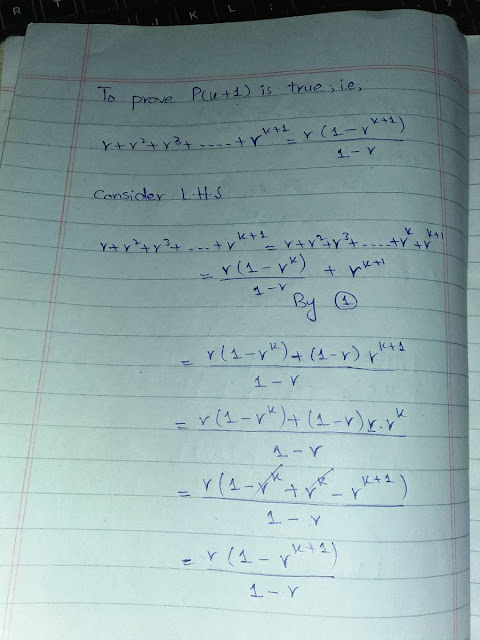 To prove P(k+1) is true, i.e,
r+r²+r³+.....+r^{k+1} = r(1-r^{k+1})
1-r
Consider L.H.S
r+r²+r³+...+r^{k+1} = r+r²+r³+.....+r^k+r^{k+1}
= r(1-r^k) + r^{k+1}
1-r
By ①
= r(1-r^k)+(1-r) r^{k+1}
1-r
= r(1-r^k)+(1-r)r.r^k
1-r
= r(1-r^k+r^k-r^{k+1})
1-r
= r(1-r^{k+1})
1-r